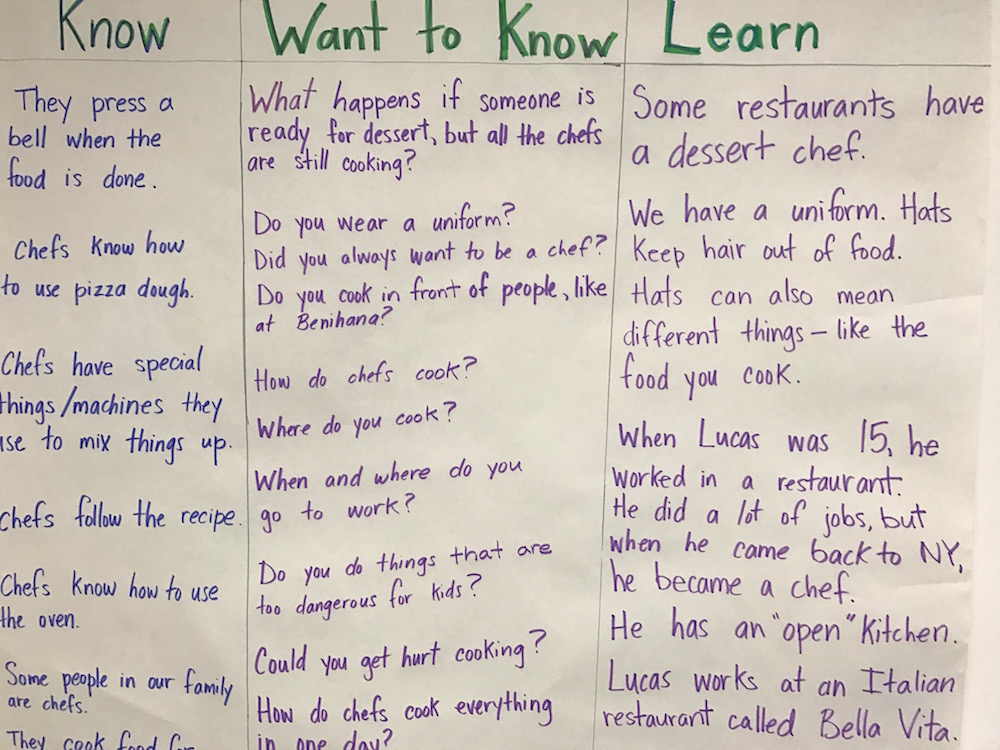 Know
They press a
bell when the
food is done.
Chefs know how
to use pizza dough.
Chefs have special
things/machines they
use to mix things up.
Chefs follow the recipe.
Chefs know how to use
the oven.
Some people in our family
are chefs.
They cook food for
Want to Know
What happens if someone is
ready for dessert, but all the chefs
are still cooking?
Do you wear a uniform?
Did you always want to be a chef?
Do you cook in front of people, like
at Benihana?
How do chefs cook?
Where do you cook?
When and where do you
go to work?
Do you do things that are
too dangerous for kids?
Could you get hurt cooking?
How do chefs cook everything
in one day?
Learn
Some restaurants have
a dessert chef.
We have a uniform. Hats
keep hair out of food.
Hats can also mean
different things – like the
food you cook.
When Lucas was 15, he
worked in a restaurant.
He did a lot of jobs, but
when he came back to NY,
he became a chef.
He has an "open" Kitchen.
Lucas works at an Italian
restaurant called Bella Vita.